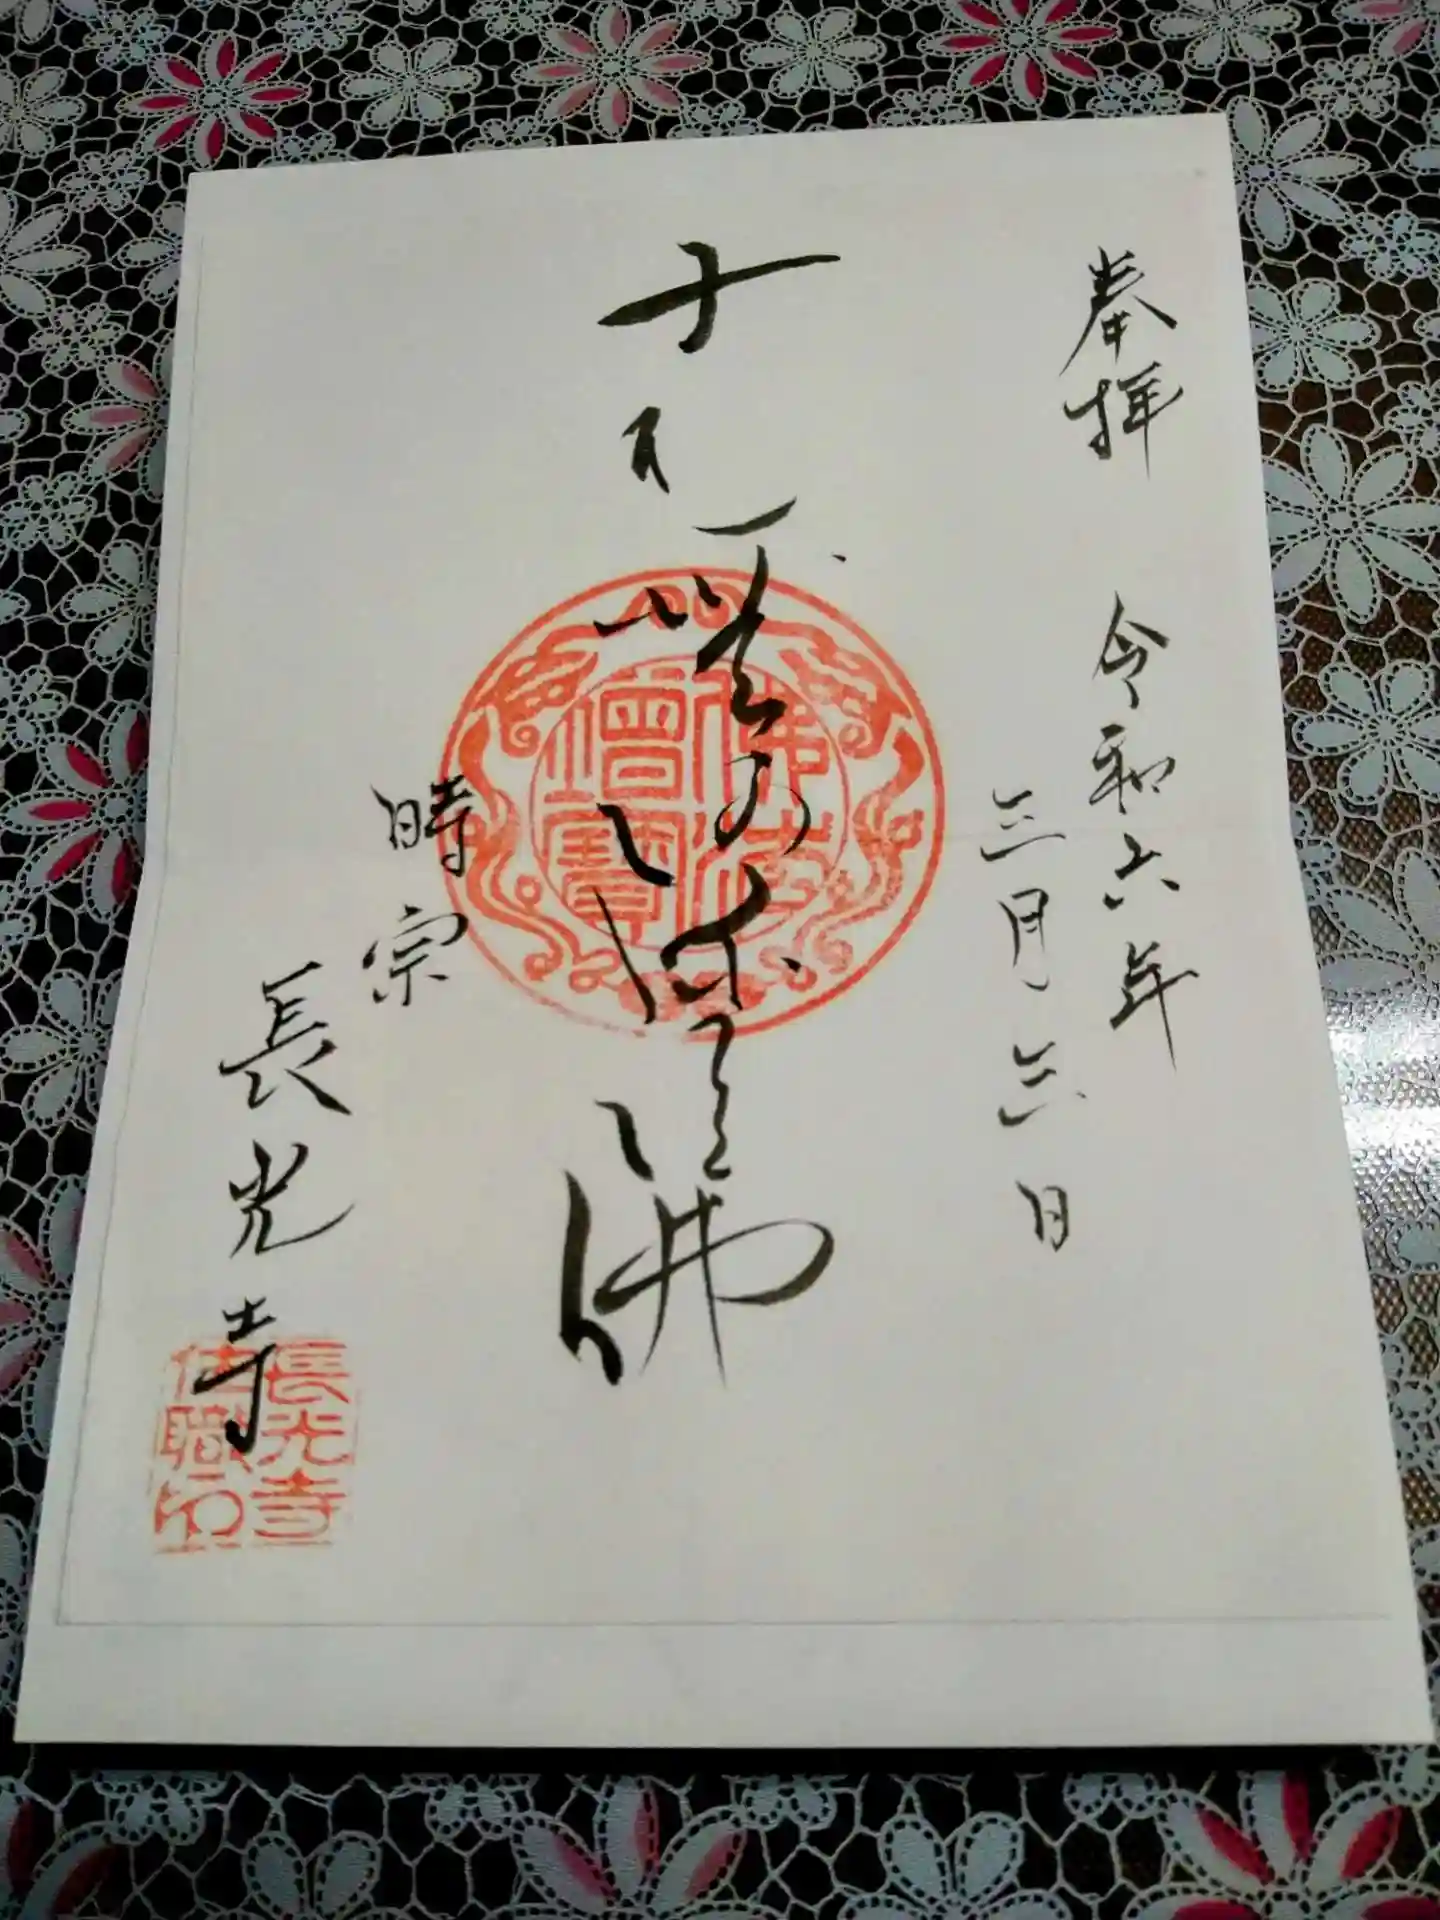 奉拝
令和六年
三月六日
南無阿弥陀佛
佛法
僧寶
時宗
長光寺
長光寺
住職印